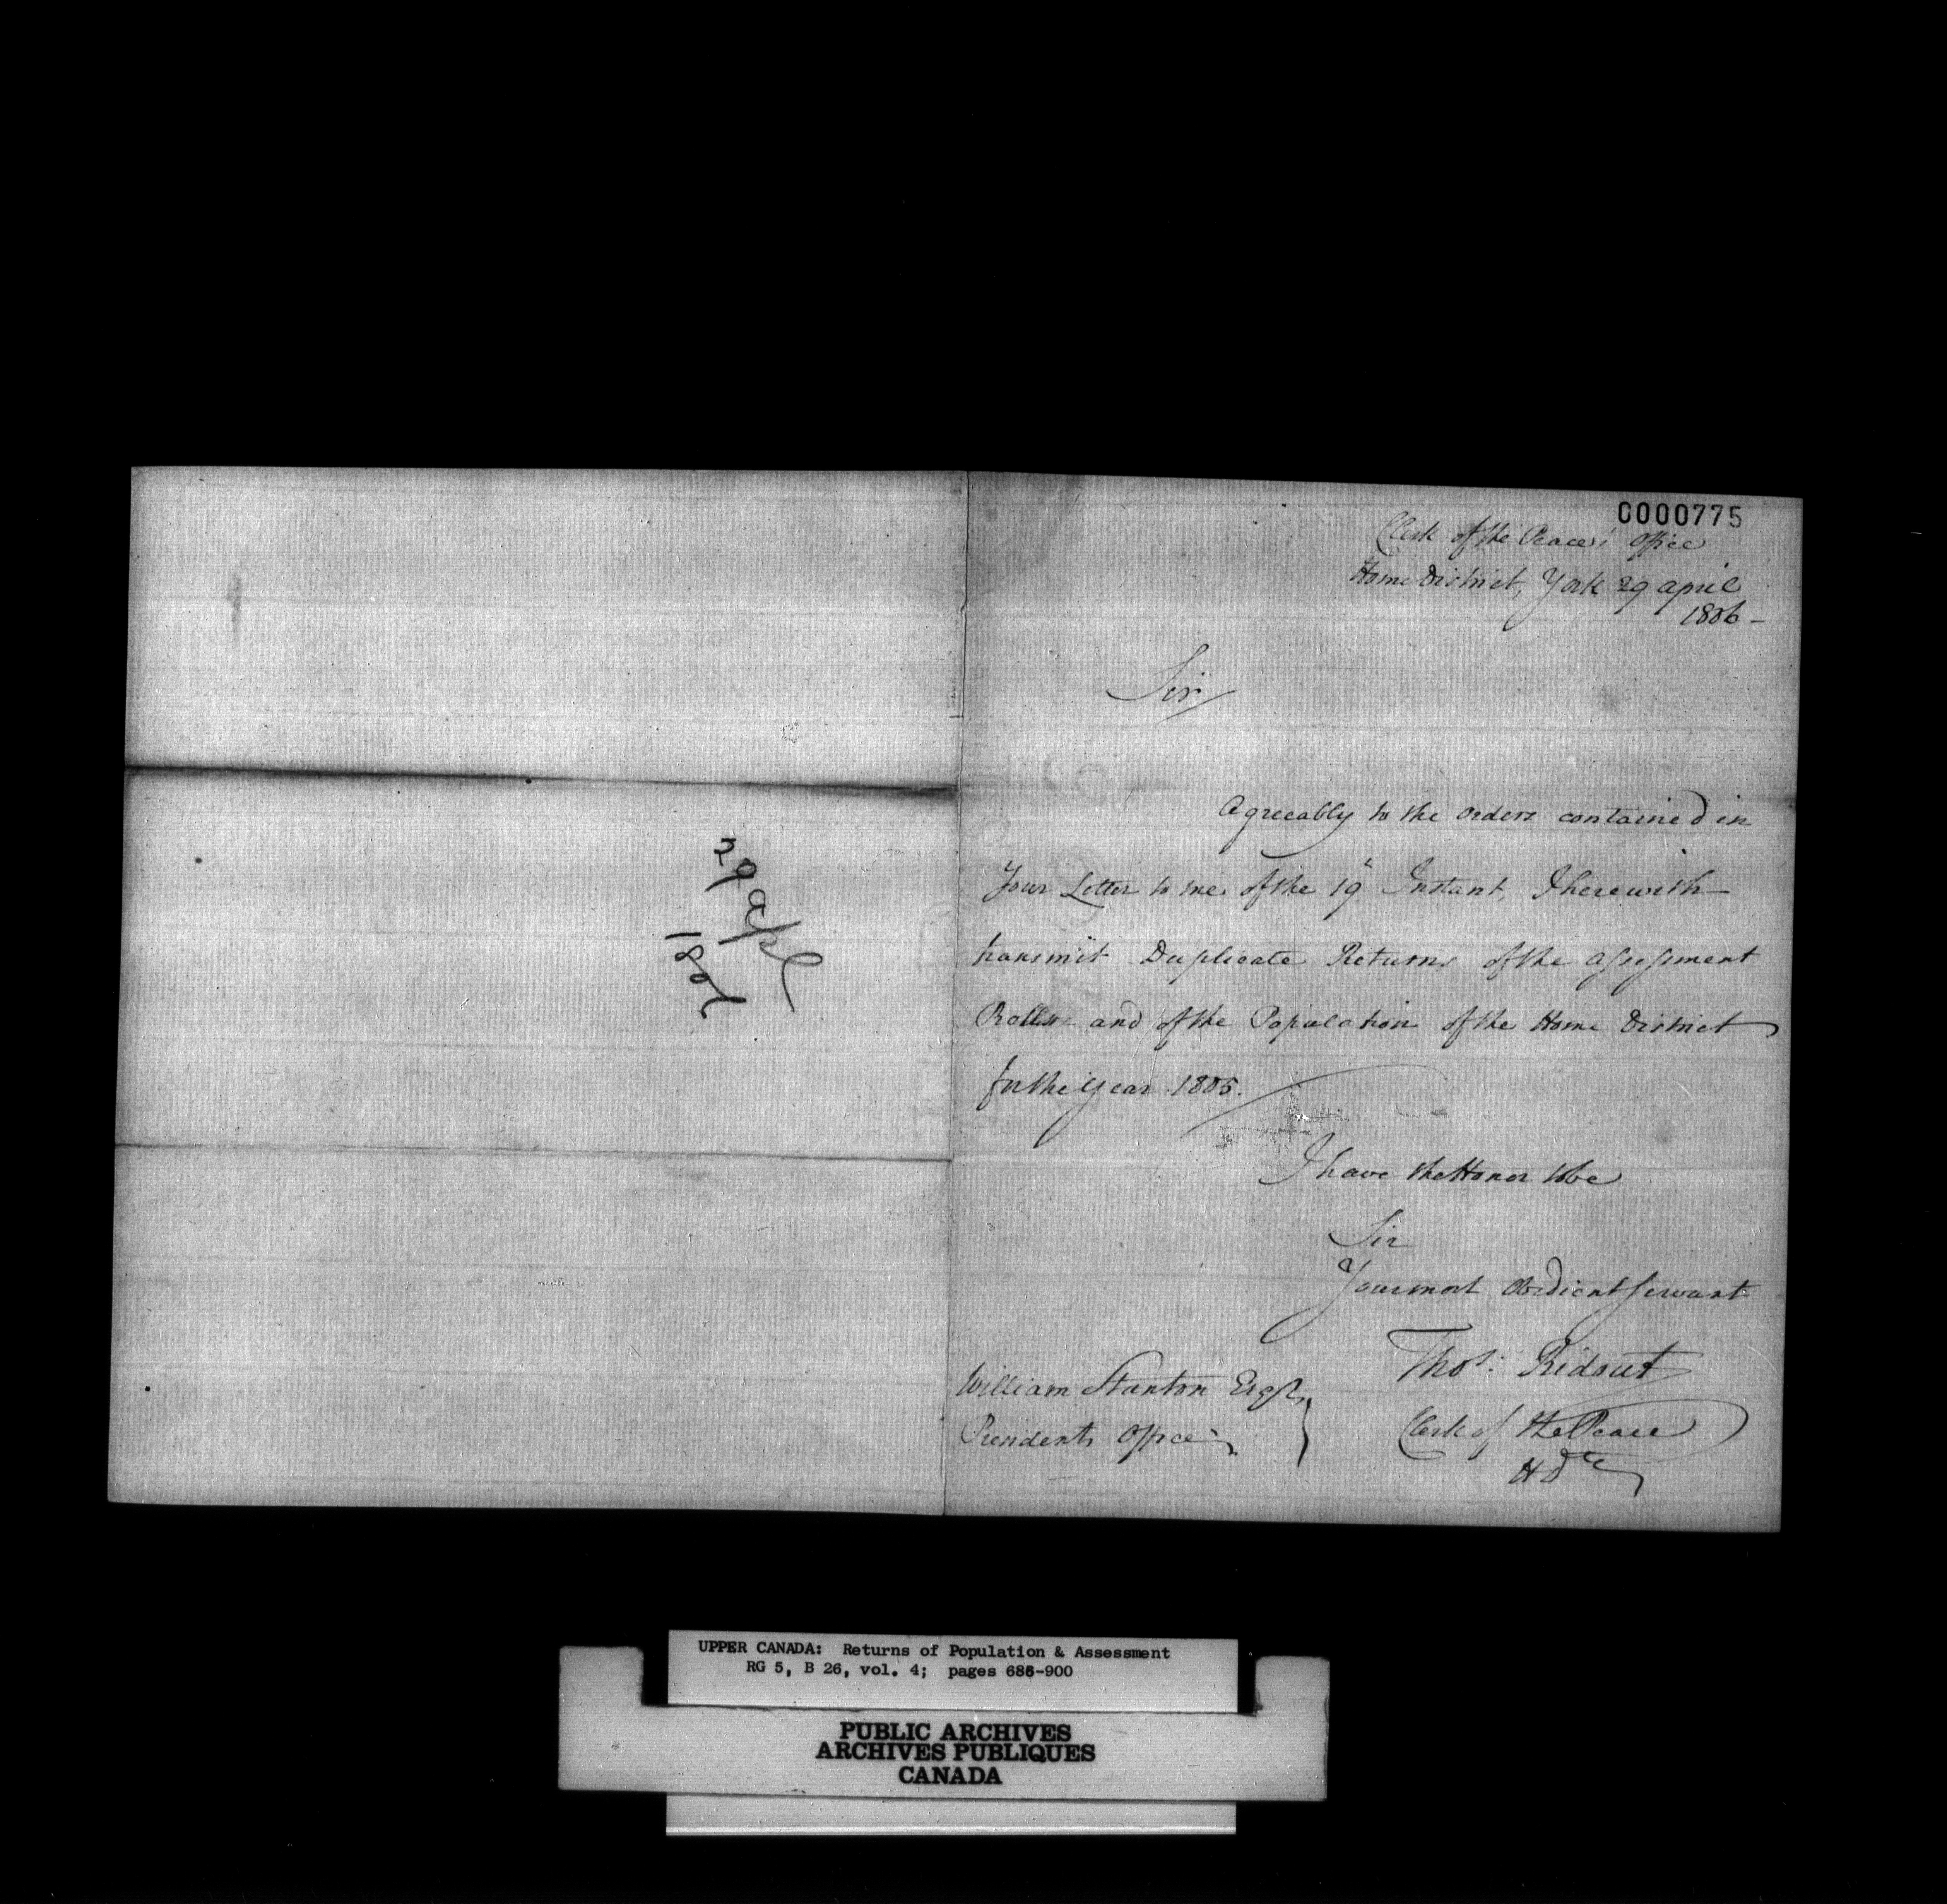 29 Apl
1806
0000775
Clerk of the Peace's Office
Home District, York 29 april
1806 -
Sir
Agreeably to the orders contained in
Your Letter to me of the 19th Instant, I herewith
transmit Duplicate Returns of the assessment
Rolls and of the Population of the Home District
for the Year 1805.
I have the Honor to be
Sir
Your most Obedient Servant
Thos. Ridout
Clerk of the Peace
H D
William Stanton Esqr
Presidents Office
UPPER CANADA: Returns of Population & Assessment
RG 5, B 26, vol. 4; pages 686-900
PUBLIC ARCHIVES
ARCHIVES PUBLIQUES
CANADA